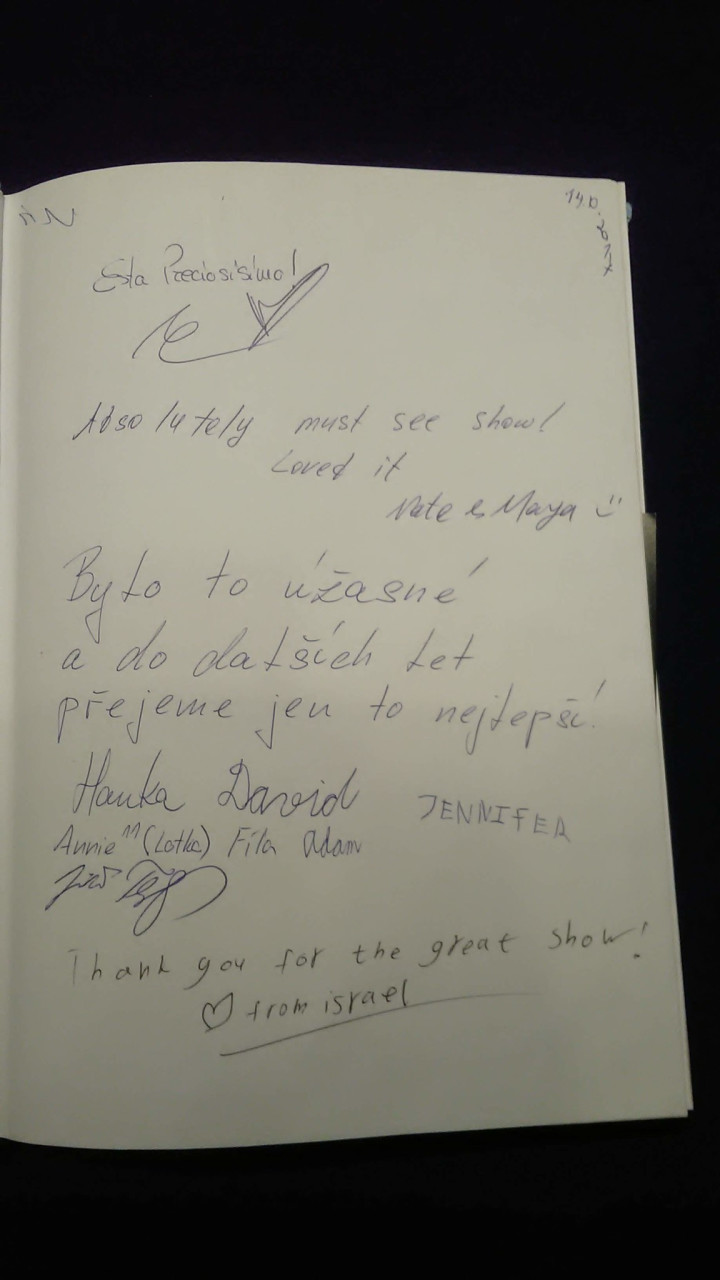 Esta Preciosisimo!
Absolutely must see show!
Loved it
Nate & Maya
Bylo to úžasné
a do dalších let
přejeme jen to nejlepší!
Hanka David
JENNIFER
Annie (Lotka) Fíla Adam
Thank you for the great show!
♡ from israel